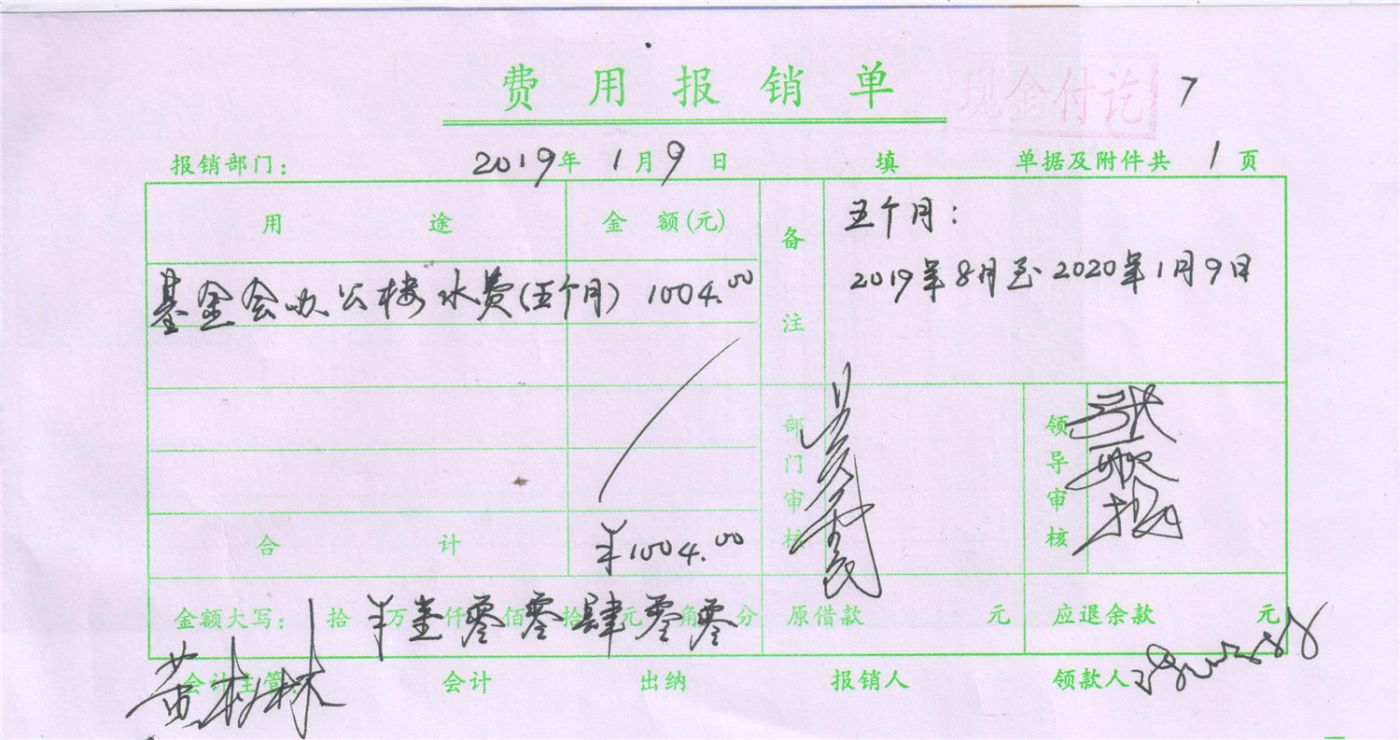 费用报销单
现金付讫
7
报销部门： 2019年 1月9日 填 单据及附件共 1 页
用 途 金 额(元) 备注 五个月：
2019年8月至2020年1月9日
基金会办公楼水费(五个月) 1004.00
部门审核 领导审核
合 计 ¥1004.00
金额大写： 拾 ¥万壹仟零佰零拾肆元零角零分 原借款 元 应退余款 元
会计主管： 黄树林 会计 出纳 报销人 领款人